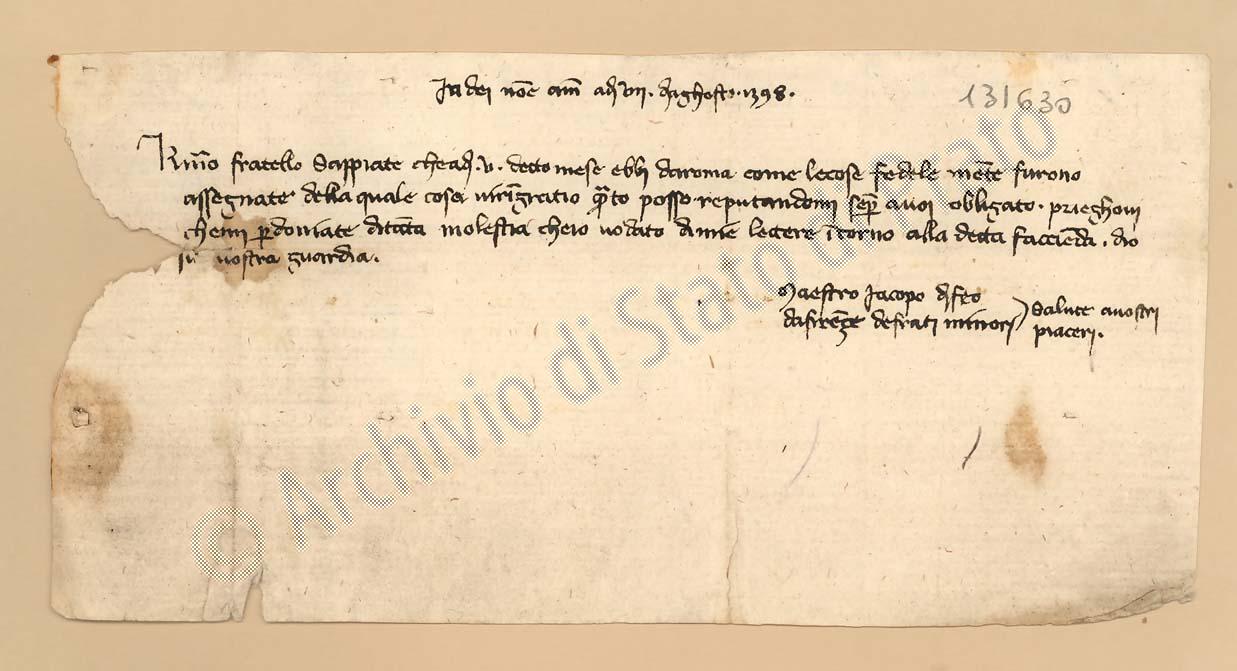 In dei nōe am̄ adi vii. daghosto. 1398.
131630
Kmo fratello Sappiate che adi .v. detto mese ebbi daroma come lecose fedele mēte furono
assegnate della quale cosa viringratio q̄to posso reputandomi sēp̄ avoi obligato. prieghovi
chemi p̱doniate ditāta molestia cheio vodato dimie lettere ītorno alla detta faccienda. dio
sia vostra guardia.
Maestro Jacopo difeo
dafirēze defrati minori
Salute avostri
piaceri.
© Archivio di Stato di Prato